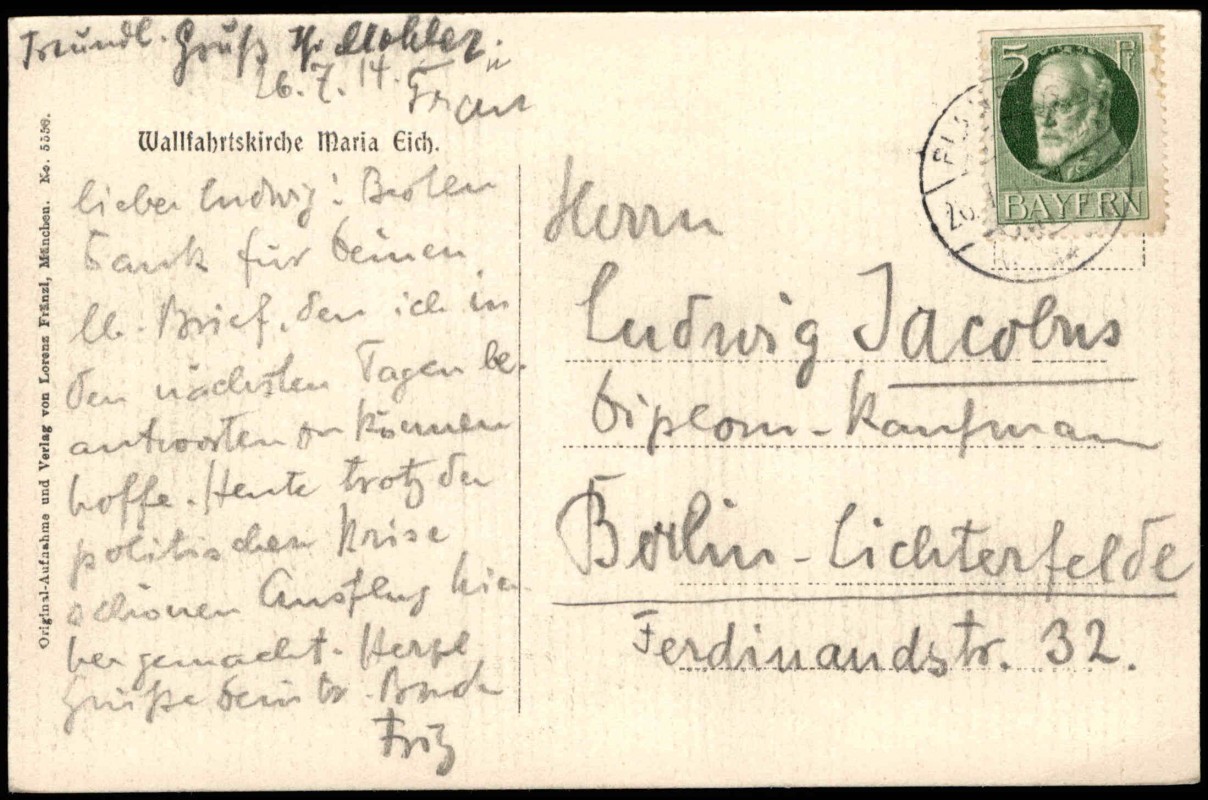 Freundl. Gruß Th. Mohler u.
26.7.14. Frau
Wallfahrtskirche Maria Eich.
lieber Ludwig! Besten
Dank für Deinen
lb. Brief, den ich in
den nächsten Tagen be-
antworten zu können
hoffe. Heute trotz der
politischen Krise
schönen Ausflug hie-
her gemacht. Herzl.
Grüße Dein tr. Bruder
Fritz
Original-Aufnahme und Verlag von Lorenz Fränzl, München. No. 5556.
5 Pf
BAYERN
Herrn
Ludwig Jacobus
Diplom-Kaufmann
Berlin-Lichterfelde
Ferdinandstr. 32.